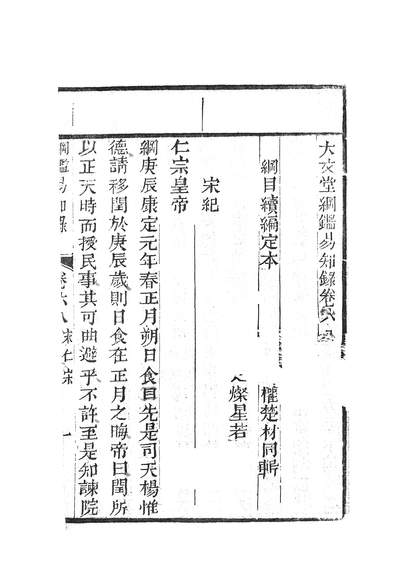 大文堂綱鑑易知錄卷六八
綱目續編定本
權楚材同輯
之燦星若
宋紀
仁宗皇帝
綱庚辰康定元年春正月朔日食目先是司天楊惟
德請移閏於庚辰歲則日食在正月之晦帝曰閏所
以正天時而授民事其可曲避乎不許至是知諫院
綱鑑易知錄 卷六八 宋仁宗 一